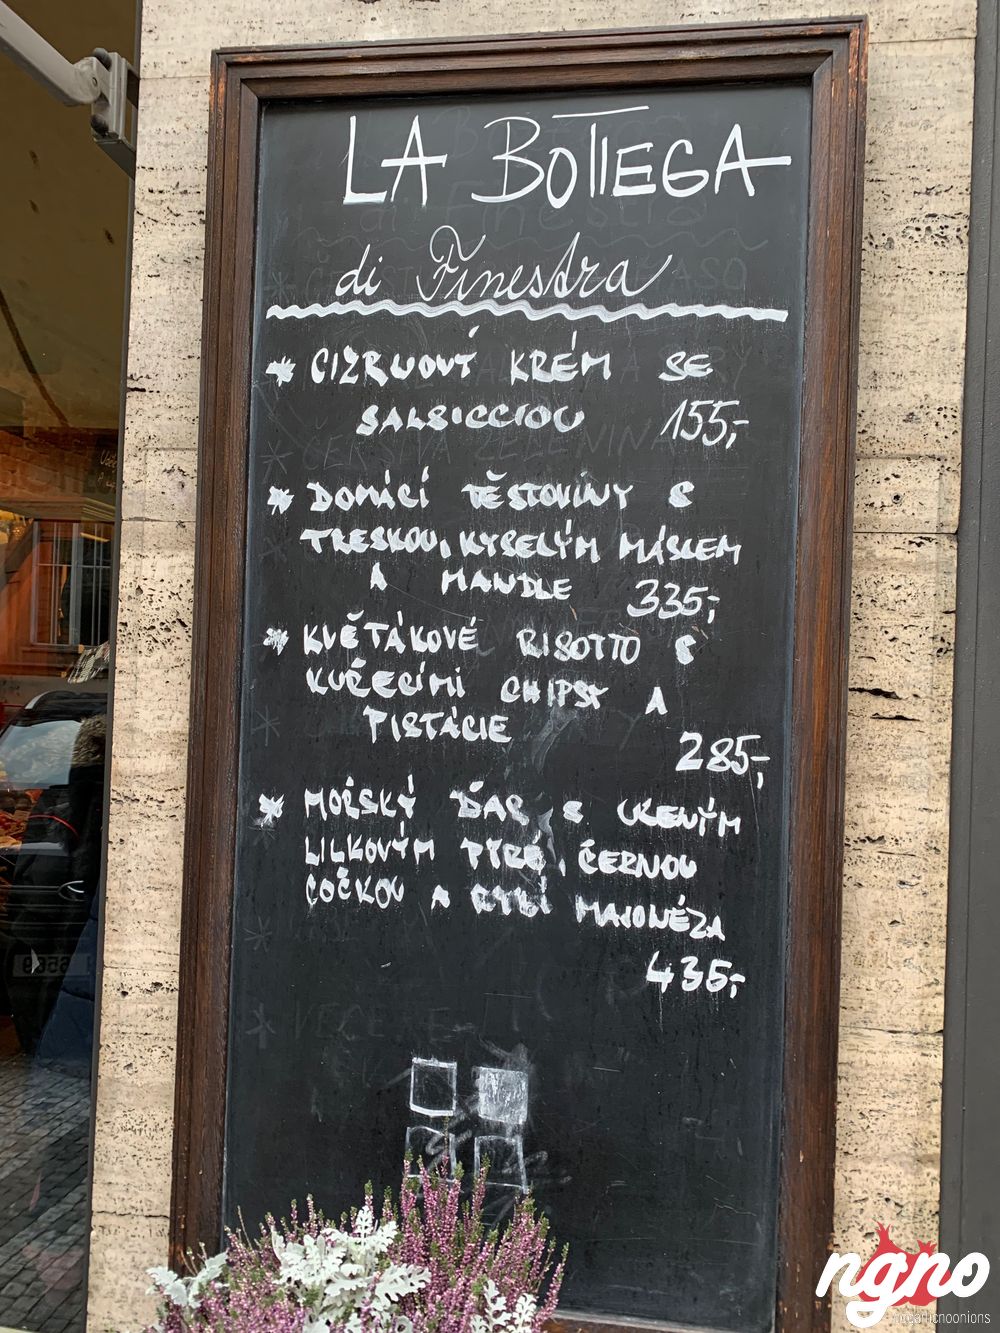 LA BOTTEGA
di Finestra
* CIZRUOVÝ KRÉM SE
SALSICCIOU 155,-
* DOMÁCÍ TĚSTOVINY S
TRESKOU, KYSELÝM MÁSLEM
A MANDLE 335,-
* KVĚTÁKOVÉ RISOTTO S
KUŘECÍMI CHIPSY A
PISTÁCIE
285,-
* MOŘSKÝ ĎAS S UZENÝM
LILKOVÝM PYRÉ, ČERNOU
ČOČKOU A RYBÍ MAJONÉZA
435,-
ngno
nogarlicnoonions